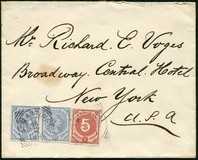 Mr. Richard C. Voges
Broadway. Central Hotel
New York
U.S.A
5